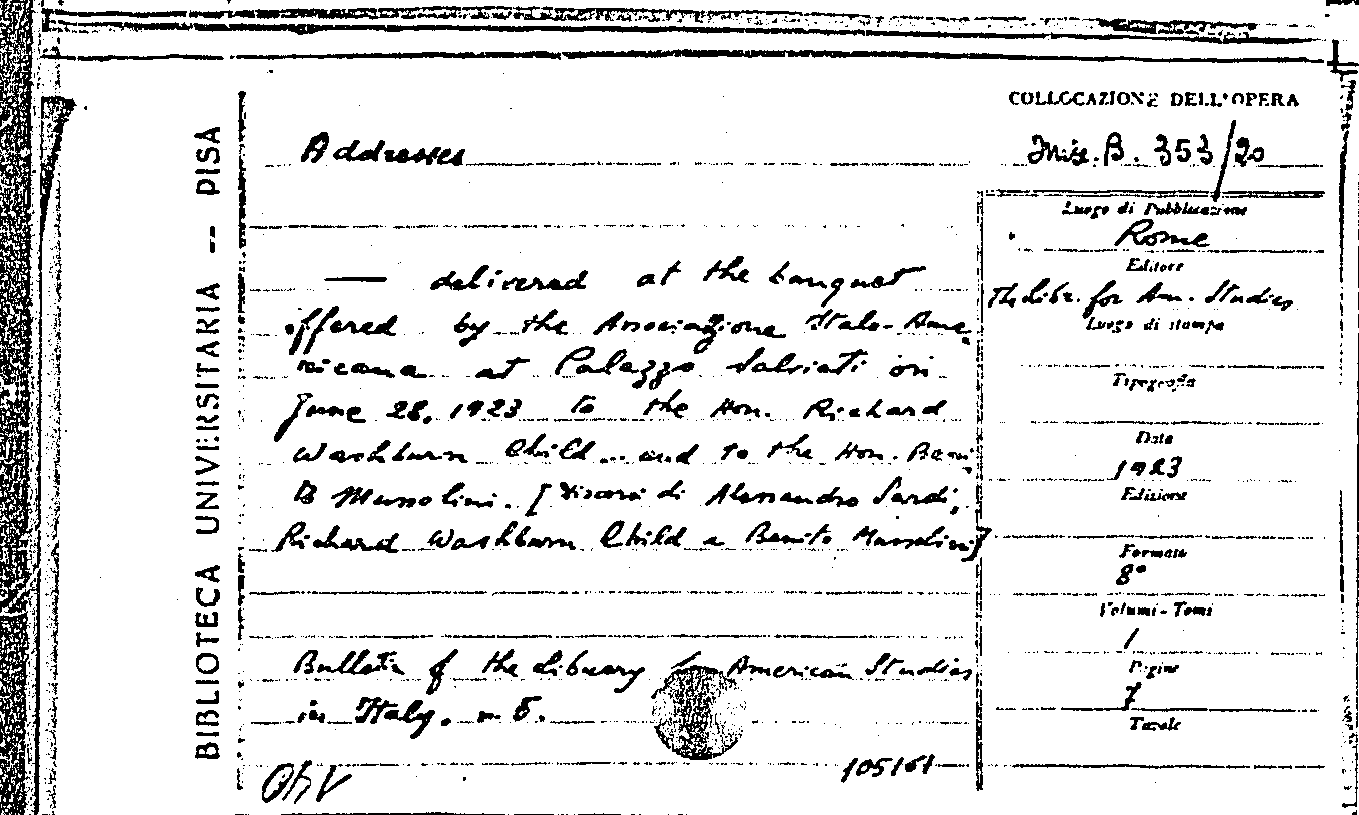 BIBLIOTECA UNIVERSITARIA -- PISA
Addresses
— delivered at the banquet
offered by the Associazione Italo-Ame-
ricana at Palazzo Salviati on
June 28, 1923 to the Hon. Richard
Washburn Child... and to the Hon. Beni-
to Mussolini. [Discorsi di Alessandro Sardi,
Richard Washburn Child e Benito Mussolini]
Bulletin of the Library for American Studies
in Italy, n. 5.
105161
COLLOCAZIONE DELL'OPERA
Misc. B. 353/20
Luogo di Pubblicazione
Rome
Editore
The Libr. for Am. Studies
Luogo di stampa
Tipografia
Data
1923
Edizione
Formato
8°
Volumi-Tomi
1
Pagine
7
Tavole